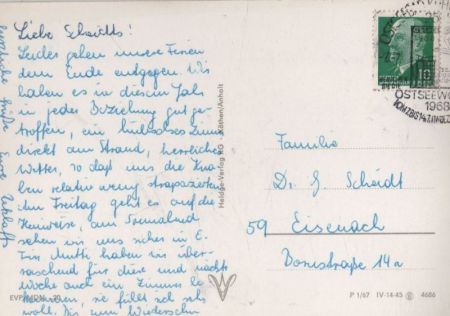 Liebe Scheidts!
Leider gehen unsere Ferien
dem Ende entgegen. Wir
haben es in diesem Jahr
in jeder Beziehung gut ge-
troffen, ein hübsches Zimmer
direkt am Strand, herrliches
Wetter, so daß uns die
relativ wenig strapazierten.
Am Freitag geht es auf die
Heimreise, am Sonnabend
sehen wir uns sicher in E.
Mutti haben wir über-
raschend für diese und nächste
Woche auch ein Zimmer be-
kommen, sie fühlt sich sehr
wohl. Bis zum Wiedersehn
herzliche Grüße Eure
Heldge-Verlag KG Köthen/Anhalt
10
OSTSEEWO
1968
Familie
Dr. G. Scheidt
59 Eisenach
Bornstraße 14a
P 1/67 IV-14-45 4686